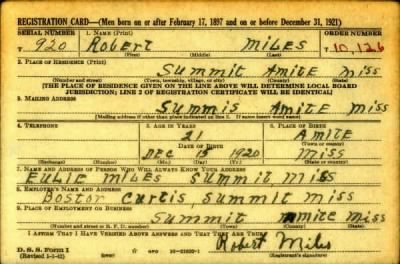 REGISTRATION CARD—(Men born on or after February 17, 1897 and on or before December 31, 1921)
SERIAL NUMBER 1. NAME (Print) ORDER NUMBER
T 920 Robert MILES T 10,126
(First) (Middle) (Last)
2. PLACE OF RESIDENCE (Print)
Summit AMITE MISS
(Number and street) (Town, township, village, or city) (County) (State)
[THE PLACE OF RESIDENCE GIVEN ON THE LINE ABOVE WILL DETERMINE LOCAL BOARD
JURISDICTION; LINE 2 OF REGISTRATION CERTIFICATE WILL BE IDENTICAL]
3. MAILING ADDRESS
Summis AMITE MISS
[Mailing address if other than place indicated on line 2. If same insert word same]
4. TELEPHONE 5. AGE IN YEARS 6. PLACE OF BIRTH
21 AMITE
DATE OF BIRTH (Town or county)
DEC 15 1920 MISS
(Exchange) (Number) (Mo.) (Day) (Yr.) (State or country)
7. NAME AND ADDRESS OF PERSON WHO WILL ALWAYS KNOW YOUR ADDRESS
MILES Summit MISS
8. EMPLOYER'S NAME AND ADDRESS
Boston Curtis, Summit MISS
9. PLACE OF EMPLOYMENT OR BUSINESS
Summit mite MISS
(Number and street or R. F. D. number) (Town) (County) (State)
I AFFIRM THAT I HAVE VERIFIED ABOVE ANSWERS AND THAT THEY ARE TRUE.
D. S. S. Form 1
Robert Miles
(Registrant's signature)